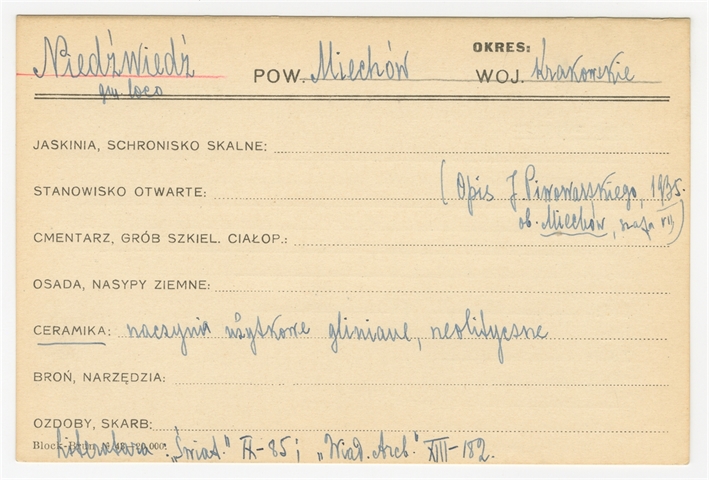 Niedźwiedź
gm loco
POW. Miechów
OKRES:
WOJ. Krakowskie
JASKINIA, SCHRONISKO SKALNE:
STANOWISKO OTWARTE: (Opis J Piwowarskiego, 1935.
ob. Miechów, VII)
CMENTARZ, GRÓB SZKIEL. CIAŁOP.:
OSADA, NASYPY ZIEMNE:
CERAMIKA: naczynia użytkowe gliniane, neolityczne
BROŃ, NARZĘDZIA:
OZDOBY, SKARB:
Literatura: „Świat." IX-85; „Wiad. Arch." XIII-182.